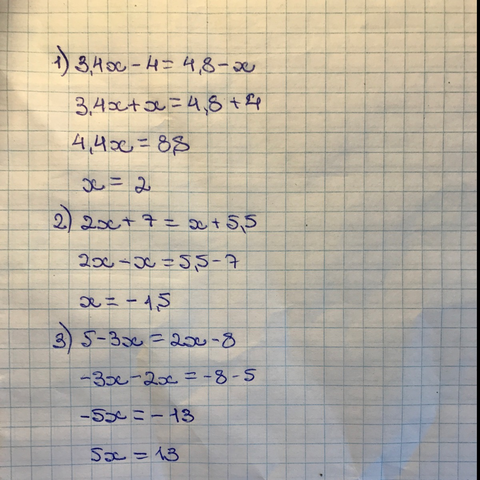 1) 3,4x - 4 = 4,8 - x
3,4x + x = 4,8 + 4
4,4x = 8,8
x = 2
2) 2x + 7 = x + 5,5
2x - x = 5,5 - 7
x = -1,5
3) 5 - 3x = 2x - 8
-3x - 2x = -8 - 5
-5x = -13
5x = 13